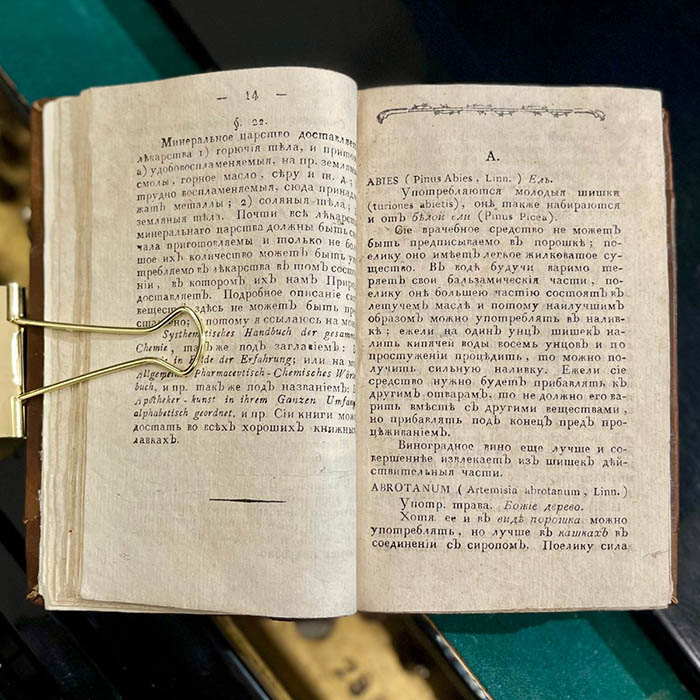 — 14 —
§. 22.
Минеральное царство доставляе
лѣкарства 1) горючія тѣла, и притом
а) удобовоспламеняемыя, на пр. земляны
смолы, горное масло, сѣру и т. д.;
трудно воспламеняемыя, сюда принад
жатъ металлы; 2) соляныя тѣла;
земляныя тѣла. Почти всѣ лѣкарст
минеральнаго царства должны быть с
чала приготовляемы и только не бол
шое ихъ количество можетъ быть у
требляемо въ лѣкарства въ томъ сост
ніи, въ которомъ ихъ намъ Приро
доставляетъ. Подробное описаніе си
веществъ здѣсь не можетъ быть пр
но; потому я ссылаюсь на мо
Systhematisches Handbuch der gesam
Chemie, также подъ заглавіемъ:
in Ende der Erfahrung; или на м
Allgemeines Pharmaceutisch-Chemisches Wört
buch, и пр. также подъ названіемъ:
Apotheker-kunst in ihrem Ganzen Umfang
alphabetisch geordnet, и пр. Сіи книги мож
достать во всѣхъ хорошихъ книжных
лавкахъ.
А.
ABIES (Pinus Abies, Linn.) Ель.
Употребляются молодыя шишки
(turiones abietis), онѣ также набираются
и отъ бѣлой ели (Pinus Picea).
Сіе врачебное средство не можетъ
быть предписываемо въ порошкѣ; по-
елику оно имѣетъ легкое жилковатое су-
щество. Въ водѣ будучи варимо те-
ряетъ свои бальзамическія части, по-
елику онѣ большею частію состоятъ въ
летучемъ маслѣ и потому наилучшимъ
образомъ можно употреблять въ налив-
кѣ; ежели на одинъ унцъ шишекъ на-
лить кипячей воды восемь унцовъ и по
простуженіи процѣдить, то можно по-
лучить сильную наливку. Ежели сіе
средство нужно будетъ прибавлять къ
другимъ отварамъ, то не должно его ва-
рить вмѣстѣ съ другими веществами,
но прибавлять подъ конецъ предъ про-
цѣживаніемъ.
Виноградное вино еще лучше и со-
вершеннѣе извлекаетъ изъ шишекъ дѣй-
ствительныя части.
ABROTANUM (Artemisia abrotanum, Linn.)
Употр. трава. Божіе дерево.
Хотя ее и въ видѣ порошка можно
употреблять, но лучше въ кашкахъ въ
соединеніи съ сиропомъ. Поелику сила
28